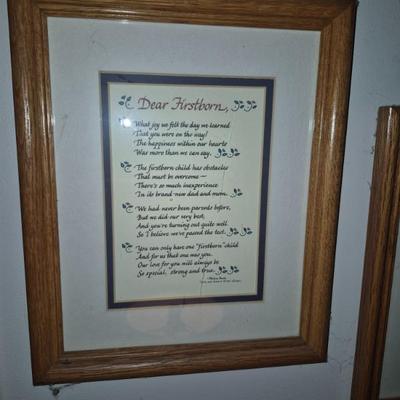 Dear Firstborn,
What joy we felt the day we learned
That you were on the way!
The happiness within our hearts
Was more than we can say.
The firstborn child has obstacles
That must be overcome—
There's so much inexperience
In its brand-new dad and mom.
We had never been parents before,
But we did our very best,
And you're turning out quite well
So I believe we've passed the test.
You can only have one "firstborn" child
And for us that one was you.
Our love for you will always be
So special, strong and true.